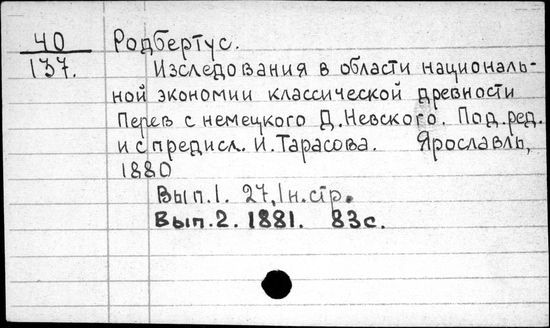 40 Родбертус.
137. Изследования в области националь-
ной экономии классической древности
Перев с немецкого Д.Невского. Под.ред.
и с предисл. И.Тарасова. Ярославль,
1880
Вып.1. 27,1н.стр.
Вып.2. 1881. 83с.